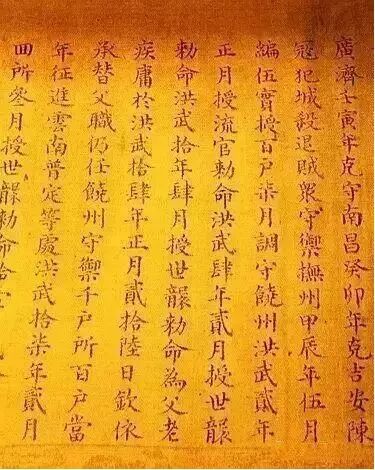 廣濟壬寅年克守南昌癸卯年克吉安陳
冦犯城殺退賊衆守禦撫州甲辰年伍月
編伍實授百戶柒月調守饒州洪武貳年
正月授流官勅命洪武肆年貳月授世襲
勅命洪武拾年肆月授世襲勅命為父老
疾庸於洪武拾肆年正月貳拾陸日欽依
承替父職仍任饒州守禦千戶所百戶當
年征進雲南普定等處洪武拾柒年貳月
回所叄月授世襲勅命